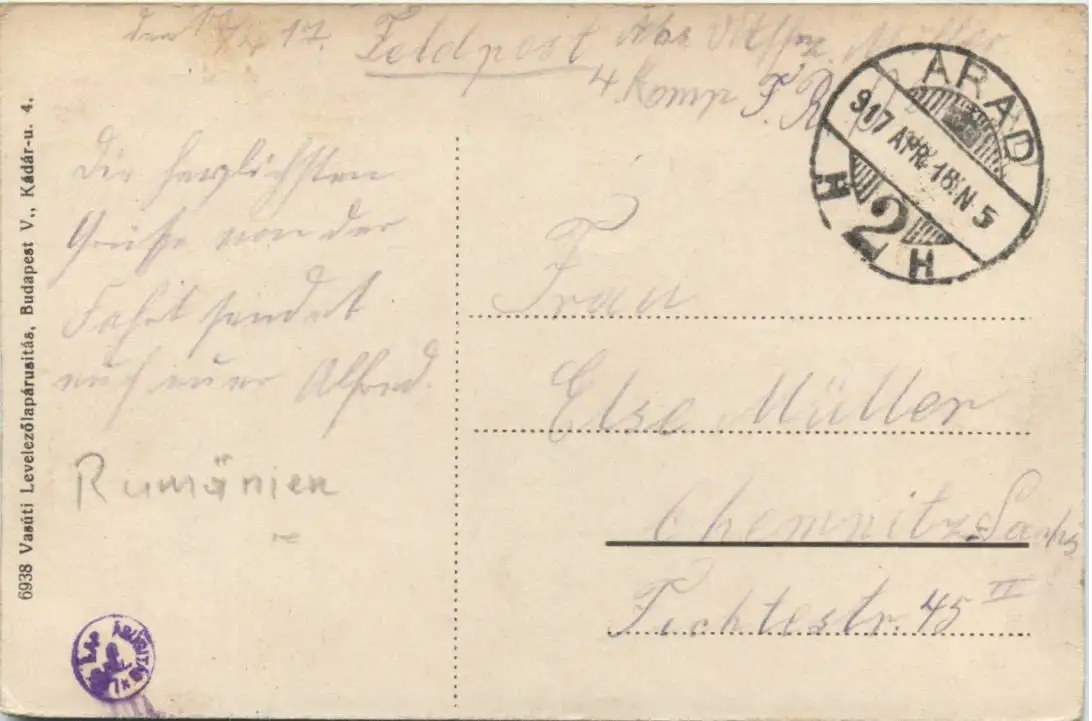 den 17/4 17. Feldpost Abs. Müller
4. Komp
ARAD
917 APR. 18. N 5
H 2 H
Die herzlichsten
Grüße von der
Fahrt sendet
euch euer Alfred.
Rumänien
Frau
Else Müller
Chemnitz Sachs
Fichtestr. 45 II
6938 Vasúti Levelezőlapárusitás, Budapest V., Kádár-u. 4.
LAP ÁRUSITÁS